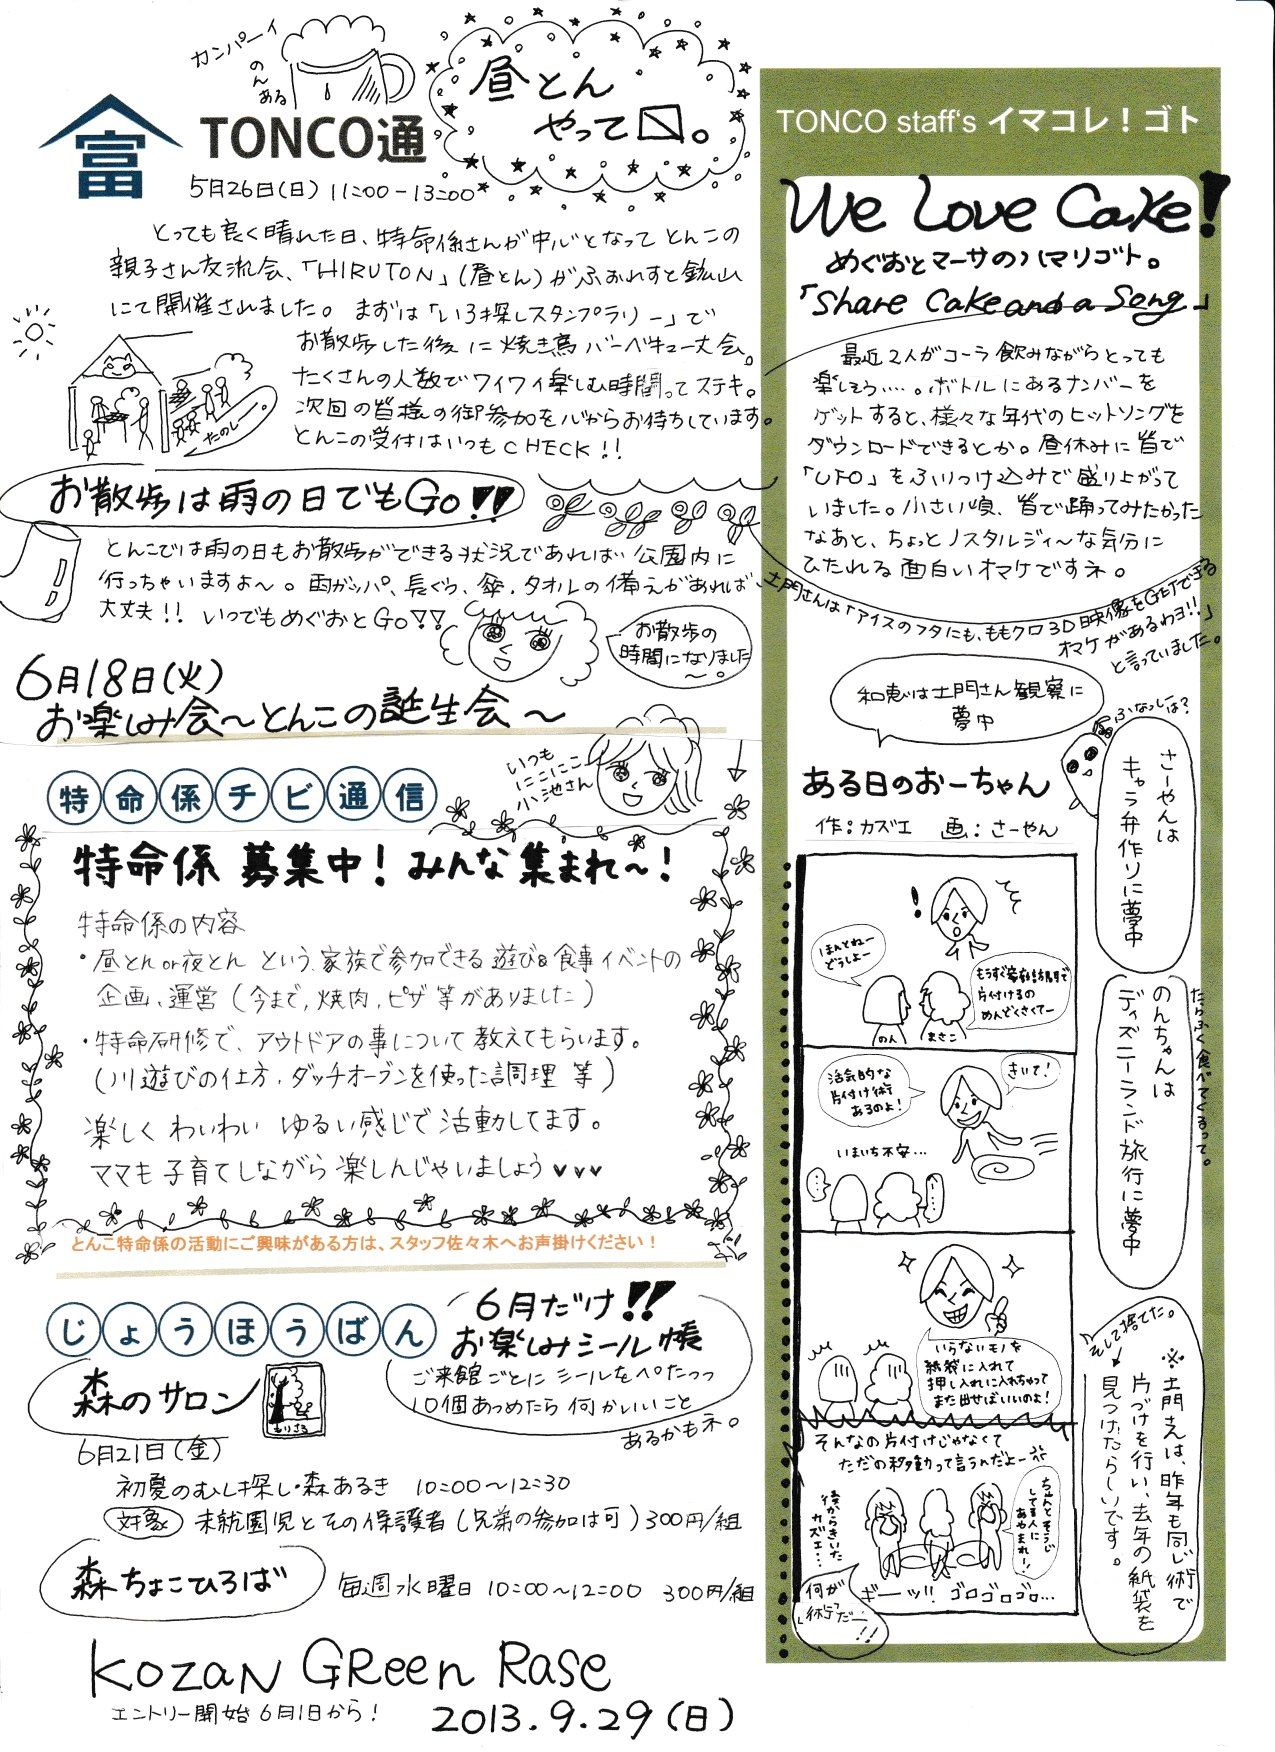 カンパーイ
のんある
昼とん
やって〼。
富
TONCO通
5月26日(日) 11:00-13:00
とっても良く晴れた日、特命係さんが中心となって とんこの
親子さん交流会、「HIRUTON」(昼とん)がふぉれすと鉱山
にて開催されました。まずは「いろ探しスタンプラリー」で
お散歩した後に焼き鳥バーベキュー大会。
たくさんの人数でワイワイ楽しむ時間ってステキ。
次回の皆様の御参加を心からお待ちしています。
とんこの受付はいつもCHECK!!
たのしー。
お散歩は雨の日でもGo!!
とんこでは雨の日もお散歩ができる状況であれば 公園内に
行っちゃいますよ~。雨ガッパ、長ぐつ、傘、タオルの備えがあれば、
大丈夫!! いつでもめぐおとGo!!
お散歩の
時間になりました
~。
6月18日(火)
お楽しみ会~とんこの誕生会~
いつも
にこにこ
小池さん
特命係チビ通信
特命係 募集中! みんな集まれ~!
特命係の内容
・昼とんor夜とん という、家族で参加できる 遊び&食事イベントの
企画、運営(今まで、焼肉、ピザ等がありました)
・特命研修で、アウトドアの事について教えてもらいます。
(川遊びの仕方、ダッチオーブンを使った調理 等)
楽しく わいわい ゆるい感じで活動してます。
ママも子育てしながら楽しんじゃいましょう♥♥♥
とんこ特命係の活動にご興味がある方は、スタッフ佐々木へお声掛けください!
じょうほうばん
6月だけ!!
お楽しみシール帳
ご来館ごとに シールをペたっっ
10個あつめたら何かいいこと
あるかもネ。
森のサロン
もりさる
6月21日(金)
初夏のむし探し・森あるき 10:00~12:30
対象 未就園児とその保護者(兄弟の参加は可)300円/組
森ちょこひろば 毎週水曜日 10:00~12:00 300円/組
KOZAN GReen Rase
エントリー開始 6月1日から!
2013.9.29(日)
TONCO staff's イマコレ!ゴト
We Love Cake!
めぐおとマーサのハマリゴト。
「Share Cake and a Song」
最近2人がコーラ飲みながらとっても
楽しそう……。ボトルにあるナンバーを
ゲットすると、様々な年代のヒットソングを
ダウンロードできるとか。昼休みに皆で
「UFO」をふりつけ込みで盛り上がって
いました。小さい頃、皆で踊ってみたかった
なあと、ちょっとノスタルジィ~な気分に
ひたれる面白いオマケですネ。
土門さんは「アイスのフタにも、ももクロ3D映像をGETできる
オマケがあるわヨ!!」
と言っていました。
和恵は土門さん観察に
夢中
ふなっしは?
さーやんは
キャラ弁作りに夢中
のんちゃんは
ディズニーランド旅行に夢中
たらふく食べてくるって。
ある日のおーちゃん
作:カズエ 画:さーやん
!
ほんとねー
どうしよー
もうすぐ家庭訪問で
片付けるの
めんどくさくてー
のん
まさこ
活気的な
片付け術
あるのよ!
きいて!
いまいち不安…
いらないモノを
紙袋に入れて
押し入れに入れちゃって
また出せばいいのよ!
そんなの片付けじゃなくて
ただの移動って言うんだよー
後からきいた
カズエ…
ちゃんとそうじ
してる人に
あやまれ!
何が
「術」だー
!!
ギーッ!! ゴロゴロゴロ…
※土門さんは、昨年も同じ術で
片づけを行い、去年の紙袋を
見つけたらしいです。
そして捨てた。